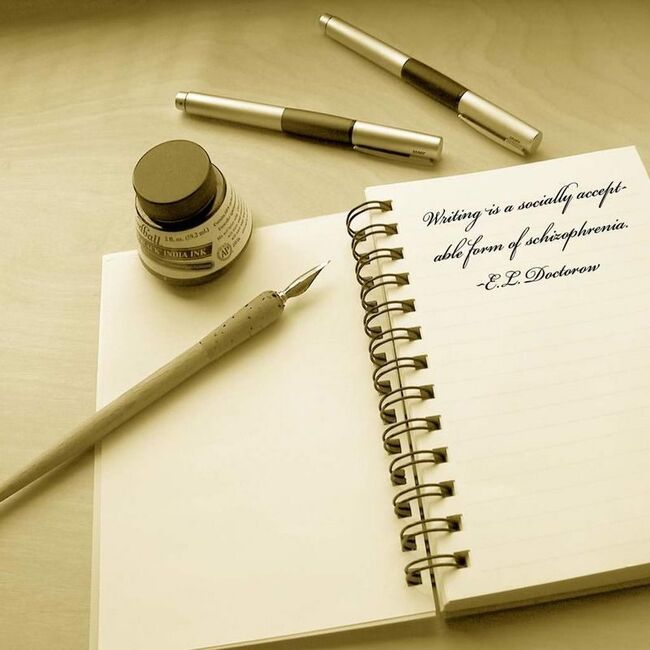 1 fl. oz. (29.2 mL)
INDIA INK
AP
Writing is a socially accept-
able form of schizophrenia.
-E.L. Doctorow